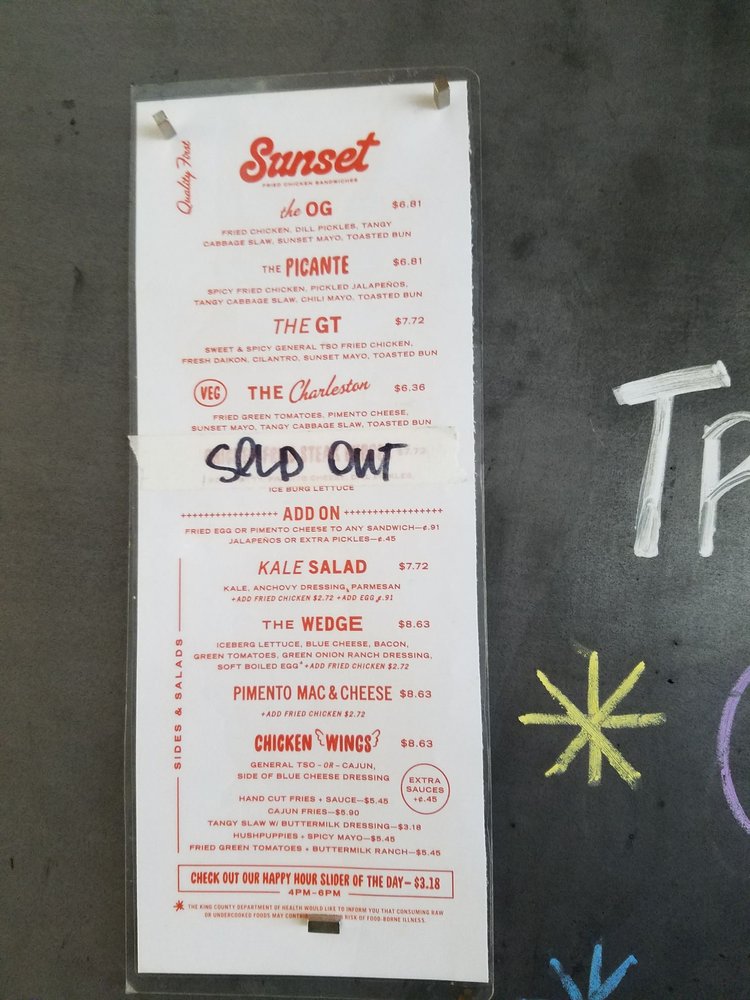 Quality First
Sunset
FRIED CHICKEN SANDWICHES
the OG $6.81
FRIED CHICKEN, DILL PICKLES, TANGY
CABBAGE SLAW, SUNSET MAYO, TOASTED BUN
THE PICANTE $6.81
SPICY FRIED CHICKEN, PICKLED JALAPEÑOS,
TANGY CABBAGE SLAW, CHILI MAYO, TOASTED BUN
THE GT $7.72
SWEET & SPICY GENERAL TSO FRIED CHICKEN,
FRESH DAIKON, CILANTRO, SUNSET MAYO, TOASTED BUN
VEG THE Charleston $6.36
FRIED GREEN TOMATOES, PIMENTO CHEESE,
SUNSET MAYO, TANGY CABBAGE SLAW, TOASTED BUN
SOLD OUT $7.72
ICE BURG LETTUCE
++++++++++++++++ ADD ON ++++++++++++++++
FRIED EGG OR PIMENTO CHEESE TO ANY SANDWICH—¢.91
JALAPEÑOS OR EXTRA PICKLES—¢.45
SIDES & SALADS
KALE SALAD $7.72
KALE, ANCHOVY DRESSING, PARMESAN
+ADD FRIED CHICKEN $2.72 +ADD EGG ¢.91
THE WEDGE $8.63
ICEBERG LETTUCE, BLUE CHEESE, BACON,
GREEN TOMATOES, GREEN ONION RANCH DRESSING,
SOFT BOILED EGG* +ADD FRIED CHICKEN $2.72
PIMENTO MAC & CHEESE $8.63
+ADD FRIED CHICKEN $2.72
CHICKEN WINGS $8.63
GENERAL TSO -OR- CAJUN,
SIDE OF BLUE CHEESE DRESSING
EXTRA
SAUCES
+¢.45
HAND CUT FRIES + SAUCE—$5.45
CAJUN FRIES—$5.90
TANGY SLAW W/ BUTTERMILK DRESSING—$3.18
HUSHPUPPIES + SPICY MAYO—$5.45
FRIED GREEN TOMATOES + BUTTERMILK RANCH—$5.45
CHECK OUT OUR HAPPY HOUR SLIDER OF THE DAY— $3.18
4PM–6PM
* THE KING COUNTY DEPARTMENT OF HEALTH WOULD LIKE TO INFORM YOU THAT CONSUMING RAW
OR UNDERCOOKED FOODS MAY RISK OF FOOD-BORNE ILLNESS.